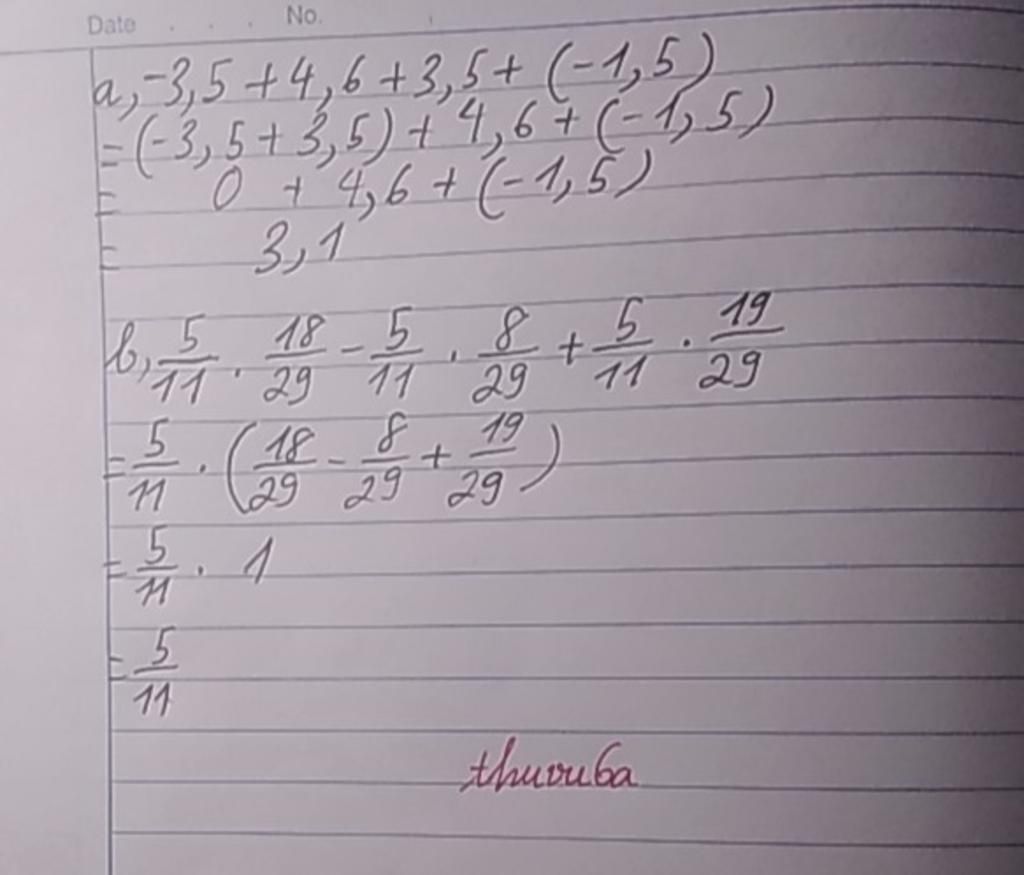 Date . . . No.
a, -3,5 + 4,6 + 3,5 + (-1,5)
= (-3,5 + 3,5) + 4,6 + (-1,5)
= 0 + 4,6 + (-1,5)
= 3,1
b, 5/11 . 18/29 - 5/11 . 8/29 + 5/11 . 19/29
= 5/11 . (18/29 - 8/29 + 19/29)
= 5/11 . 1
= 5/11
thuvuba